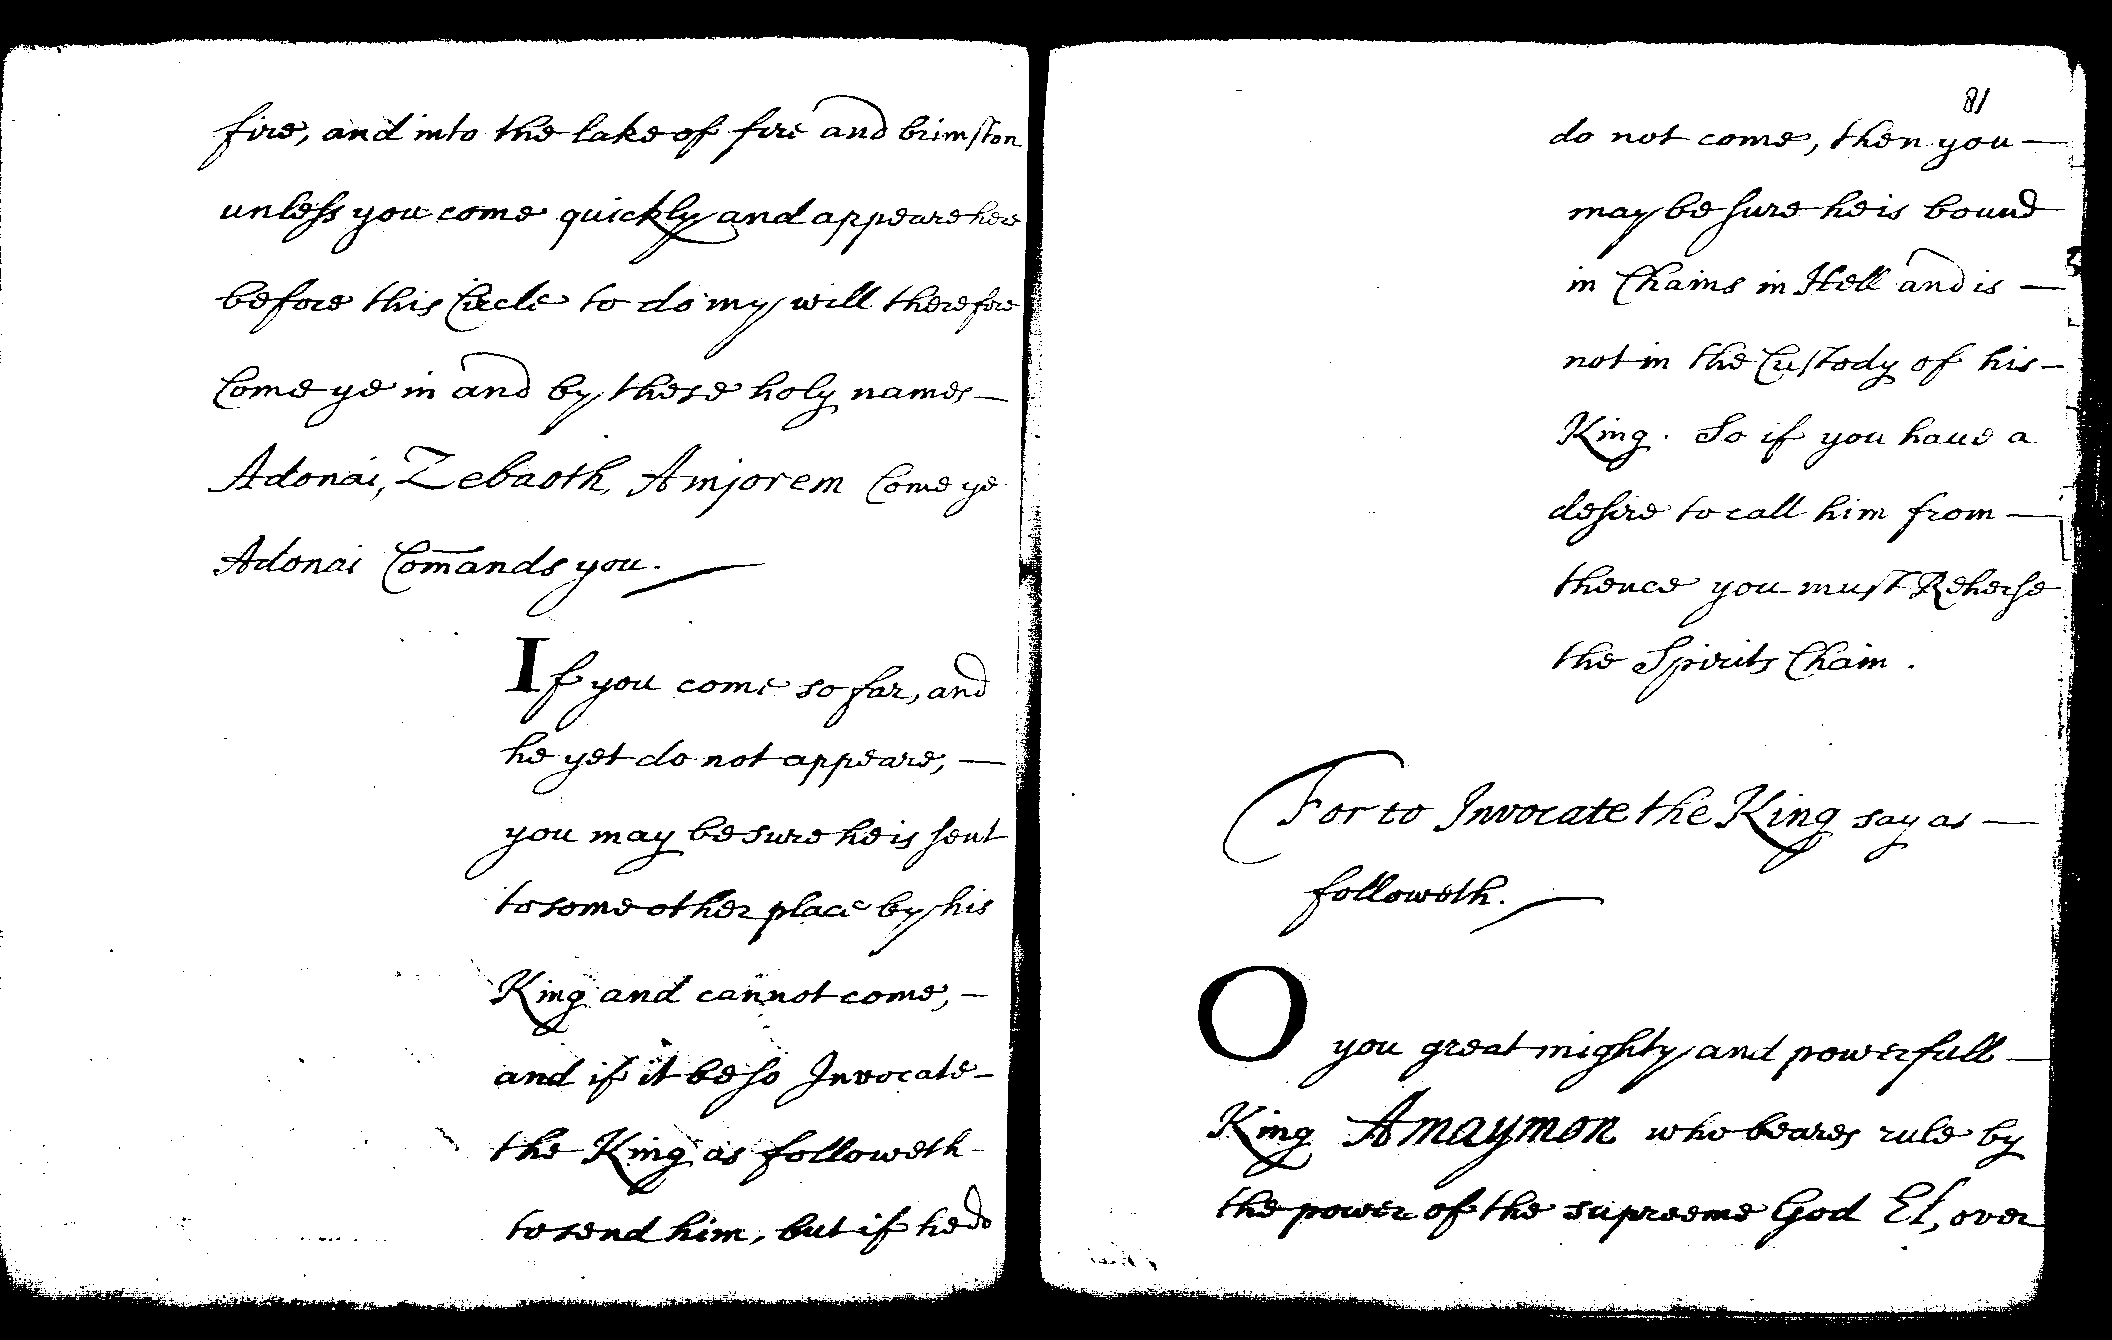 fire, and into the lake of fire and brimston
unless you come quickly and appeare here
before this Circle to do my will therefore
Come ye in and by these holy names —
Adonai, Zebaoth, Amjorem Come ye
Adonai Com̄ands you.
If you come so far, and
he yet do not appeare, —
you may be sure he is sent
to some other place by his
King and cannot come, —
and if it be so Invocate —
the King as followeth
to send him, but if he do
81
do not come, then you —
may be sure he is bound
in Chains in Hell and is —
not in the Custody of his —
King. So if you have a
desire to call him from —
thence you must Reherse
the Spirits Chain.
For to Invocate the King say as —
followeth.
O you great mighty and powerfull —
King Amaymon who beares rule by
the power of the supreeme God El, over